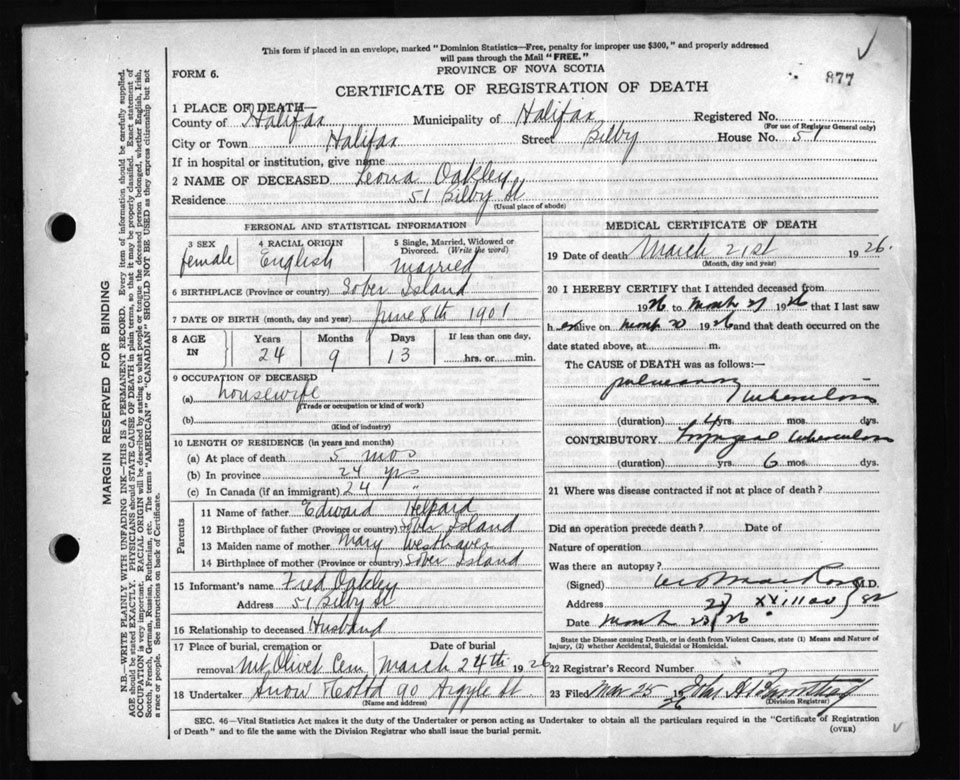 This form if placed in an envelope, marked "Dominion Statistics—Free, penalty for improper use $300," and properly addressed
will pass through the Mail "FREE."
PROVINCE OF NOVA SCOTIA
FORM 6.
877
CERTIFICATE OF REGISTRATION OF DEATH
1 PLACE OF DEATH—
County of Halifax Municipality of Halifax Registered No.
(For use of Registrar General only)
City or Town Halifax Street Bilby House No. 51
If in hospital or institution, give name
2 NAME OF DECEASED Leona Oakley
Residence 51 Bilby St
(Usual place of abode)
PERSONAL AND STATISTICAL INFORMATION
3 SEX female
4 RACIAL ORIGIN English
5 Single, Married, Widowed or Divorced. (Write the word) Married
6 BIRTHPLACE (Province or country) Sober Island
7 DATE OF BIRTH (month, day and year) June 8th 1901
8 AGE IN Years 24 Months 9 Days 13 If less than one day, hrs. or min.
9 OCCUPATION OF DECEASED
(a) housewife
(Trade or occupation or kind of work)
(b)
(Kind of industry)
10 LENGTH OF RESIDENCE (in years and months)
(a) At place of death 5 mos
(b) In province 24 yrs
(c) In Canada (if an immigrant) 24 "
Parents
11 Name of father Edward Helpard
12 Birthplace of father (Province or country) Sober Island
13 Maiden name of mother Mary Westhaver
14 Birthplace of mother (Province or country) Sober Island
15 Informant's name Fred Oakley
Address 51 Bilby St
16 Relationship to deceased Husband
17 Place of burial, cremation or removal Mt Olivet Cem Date of burial March 24th 1926
18 Undertaker Snow & Co Ltd 90 Argyle St
(Name and address)
MEDICAL CERTIFICATE OF DEATH
19 Date of death March 21st 1926.
(Month, day and year)
20 I HEREBY CERTIFY that I attended deceased from
1926 to March 21 1926 that I last saw
h er alive on March 20 1926 and that death occurred on the
date stated above, at m.
The CAUSE of DEATH was as follows:—
pulmonary tuberculosis
(duration) 4 yrs. mos. dys.
CONTRIBUTORY laryngeal tuberculosis
(duration) yrs. 6 mos. dys.
21 Where was disease contracted if not at place of death?
Did an operation precede death? Date of
Nature of operation
Was there an autopsy?
(Signed) M.D.
Address
Date March 23/26
State the Disease causing Death, or in death from Violent Causes, state (1) Means and Nature of
Injury, (2) whether Accidental, Suicidal or Homicidal.
22 Registrar's Record Number
23 Filed Mar 25 1926
(Division Registrar)
SEC. 46—Vital Statistics Act makes it the duty of the Undertaker or person acting as Undertaker to obtain all the particulars required in the "Certificate of Registration
of Death" and to file the same with the Division Registrar who shall issue the burial permit.
(OVER)
MARGIN RESERVED FOR BINDING
N.B.—WRITE PLAINLY WITH UNFADING INK—THIS IS A PERMANENT RECORD. Every item of information should be carefully supplied.
AGE should be stated EXACTLY. PHYSICIANS should STATE CAUSE OF DEATH in plain terms, so that it may be properly classified. Exact statement of
OCCUPATION is very important. RACIAL ORIGIN will be described by stating to what people or tongue the deceased person belonged, whether English, Irish,
Scotch, French, German, Russian, Ruthenian, etc. The terms "AMERICAN" or "CANADIAN" SHOULD NOT BE USED as they express citizenship but not
a race or people. See instructions on back of Certificate.